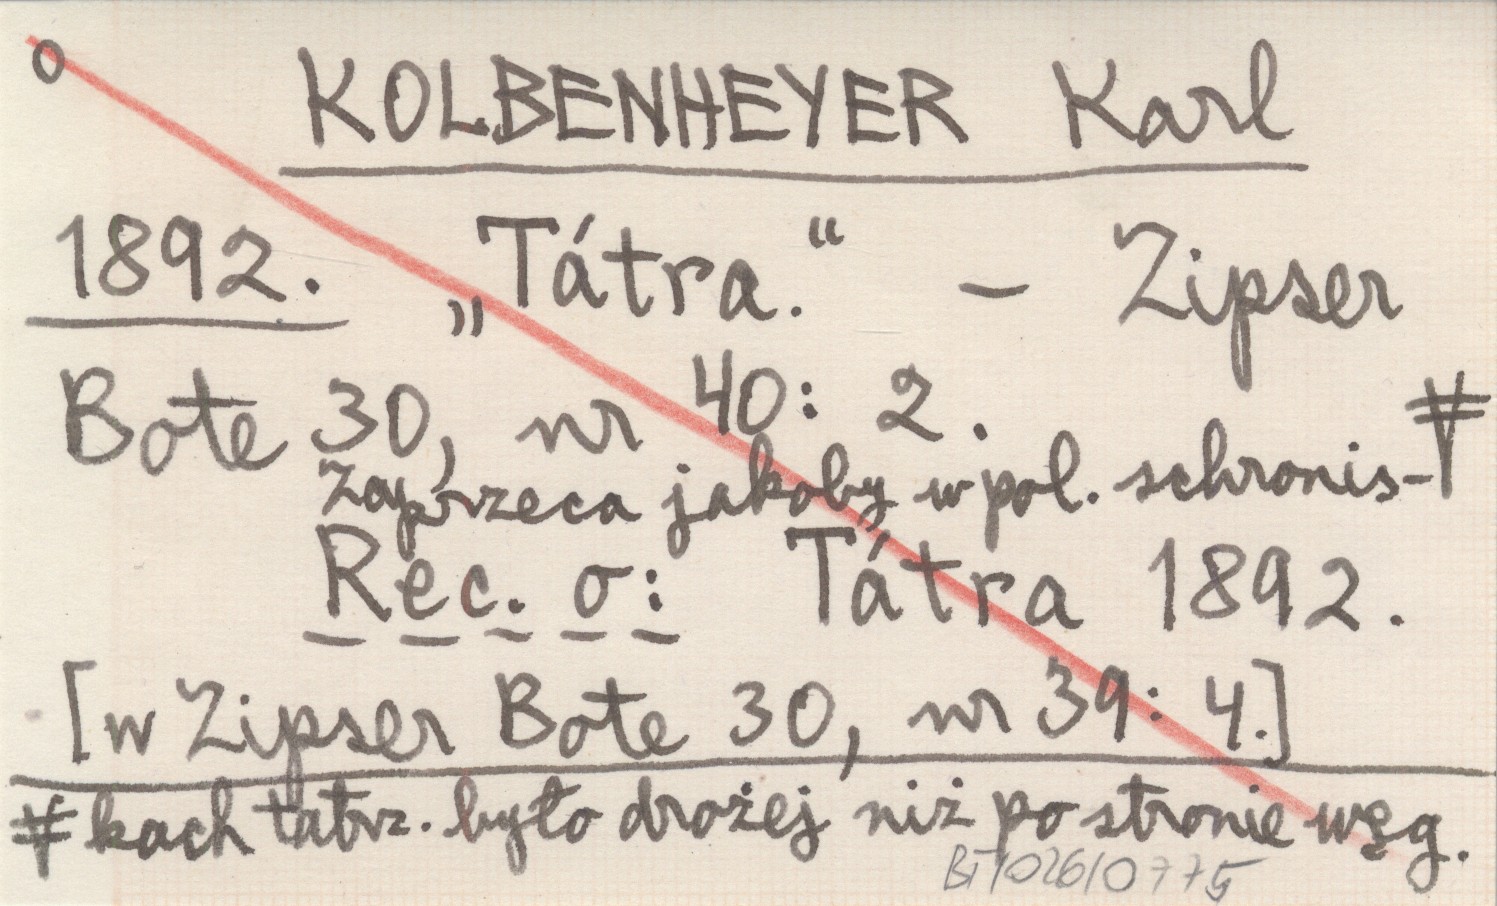 o
KOLBENHEYER Karl
1892. „Tátra.“ – Zipser
Bote 30, nr 40: 2.
Zaprzeca jakoby w pol. schronis-
Rec. o: Tátra 1892.
[w Zipser Bote 30, nr 39: 4.]
kach tatrz. było drożej niż po stronie węg.
BT/026/0775